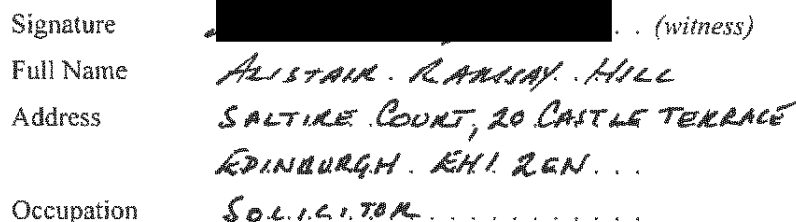 Signature (witness)
Full Name ALISTAIR RAMSAY HILL
Address SALTIRE COURT, 20 CASTLE TERRACE
EDINBURGH EH1 2EN
Occupation SOLICITOR